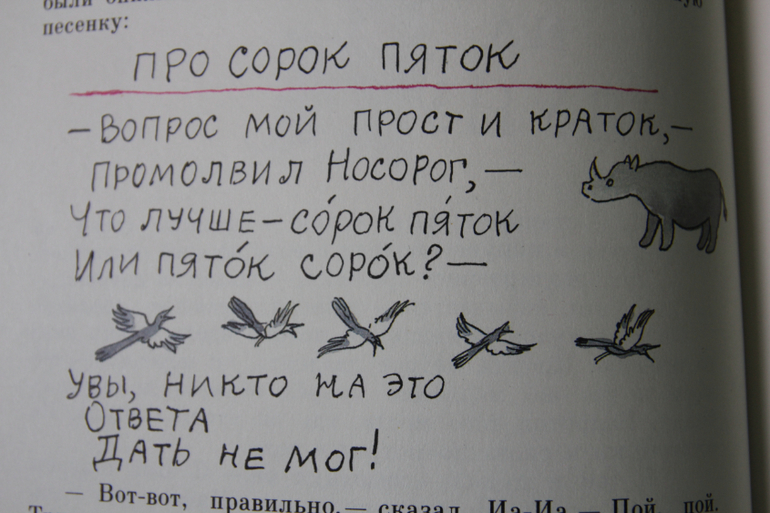 песенку:
ПРО СОРОК ПЯТОК
– ВОПРОС МОЙ ПРОСТ И КРАТОК, –
ПРОМОЛВИЛ НОСОРОГ, –
ЧТО ЛУЧШЕ – СО́РОК ПЯ́ТОК
ИЛИ ПЯТО́К СОРО́К? –
УВЫ, НИКТО НА ЭТО
ОТВЕТА
ДАТЬ НЕ МОГ!
– Вот-вот, правильно, – сказал Иа-Иа. – Пой, пой.